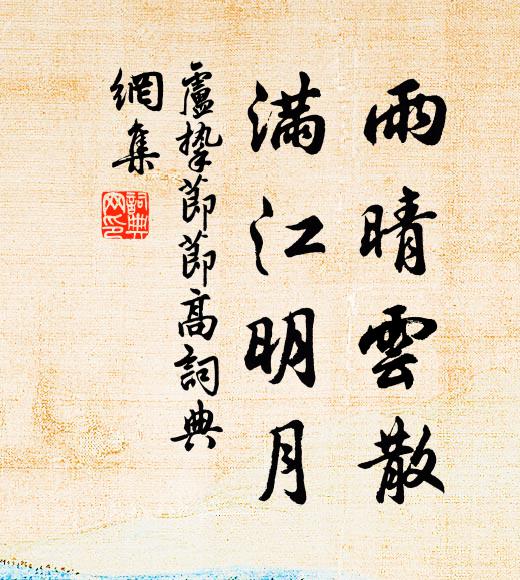 雨晴雲散
滿江明月
盧摯節節高詞典
網集
詞典網印